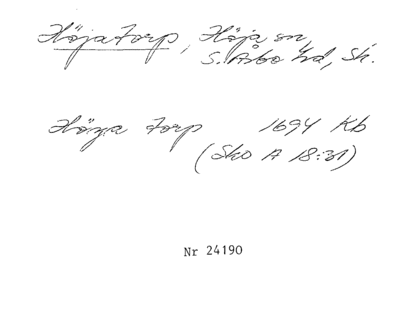 Höjatorp, Höja sn,
S. Åsbo hd, Sk.
Höya torp 1694 Kb
(Sko A 18:31)
Nr 24190